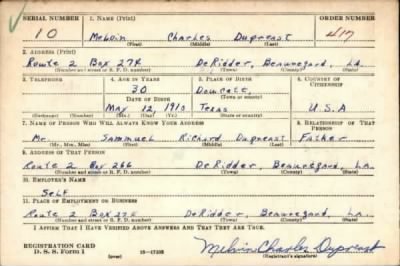 SERIAL NUMBER 1. NAME (Print) ORDER NUMBER
10 Melvin Charles Dupreast 417
(First) (Middle) (Last)
2. ADDRESS (Print)
Route 2 Box 274 DeRidder, Beauregard, La.
(Number and street or R. F. D. number) (Town) (County) (State)
3. TELEPHONE 4. AGE IN YEARS 5. PLACE OF BIRTH 6. COUNTRY OF CITIZENSHIP
30
DATE OF BIRTH (Town or county)
May 12, 1910 Texas U.S.A
(Exchange) (Number) (Mo.) (Day) (Yr.) (State or country)
7. NAME OF PERSON WHO WILL ALWAYS KNOW YOUR ADDRESS 8. RELATIONSHIP OF THAT PERSON
Mr Sammuel Richard Dupreast Father
(Mr., Mrs., Miss) (First) (Middle) (Last)
9. ADDRESS OF THAT PERSON
Route 2 Box 266 DeRidder, Beauregard, La.
(Number and street or R. F. D. number) (Town) (County) (State)
10. EMPLOYER'S NAME
Self
11. PLACE OF EMPLOYMENT OR BUSINESS
Route 2 Box DeRidder, Beauregard, La.
(Number and street or R. F. D. number) (Town) (County) (State)
I AFFIRM THAT I HAVE VERIFIED ABOVE ANSWERS AND THAT THEY ARE TRUE.
REGISTRATION CARD
D. S. S. Form 1 (over) Melvin Charles Dupreast
(Registrant's signature)